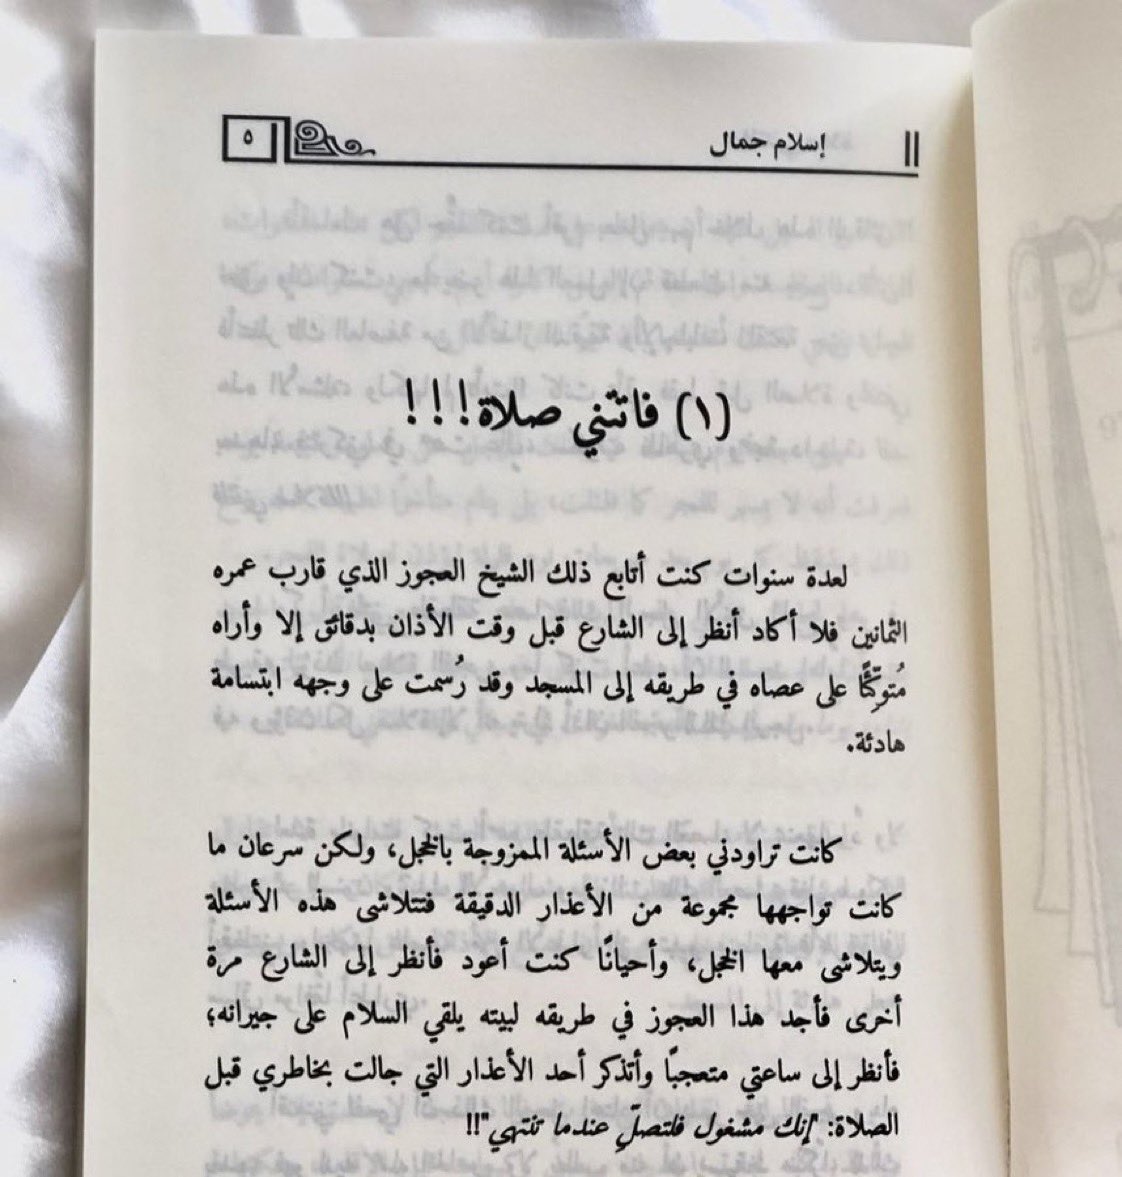 إسلام جمال
٥
(١) فاتتني صلاة!!!
لعدة سنوات كنت أتابع ذلك الشيخ العجوز الذي قارب عمره
الثمانين فلا أكاد أنظر إلى الشارع قبل وقت الأذان بدقائق إلا وأراه
مُتوكِّئًا على عصاه في طريقه إلى المسجد وقد رُسمت على وجهه ابتسامة
هادئة.
كانت تراودني بعض الأسئلة الممزوجة بالخجل، ولكن سرعان ما
كانت تواجهها مجموعة من الأعذار الدقيقة فتتلاشى هذه الأسئلة
ويتلاشى معها الخجل، وأحيانًا كنت أعود فأنظر إلى الشارع مرة
أخرى فأجد هذا العجوز في طريقه لبيته يلقي السلام على جيرانه؛
فأنظر إلى ساعتي متعجبًا وأتذكر أحد الأعذار التي جالت بخاطري قبل
الصلاة: "إنك مشغول فلتصلِّ عندما تنتهي"!!